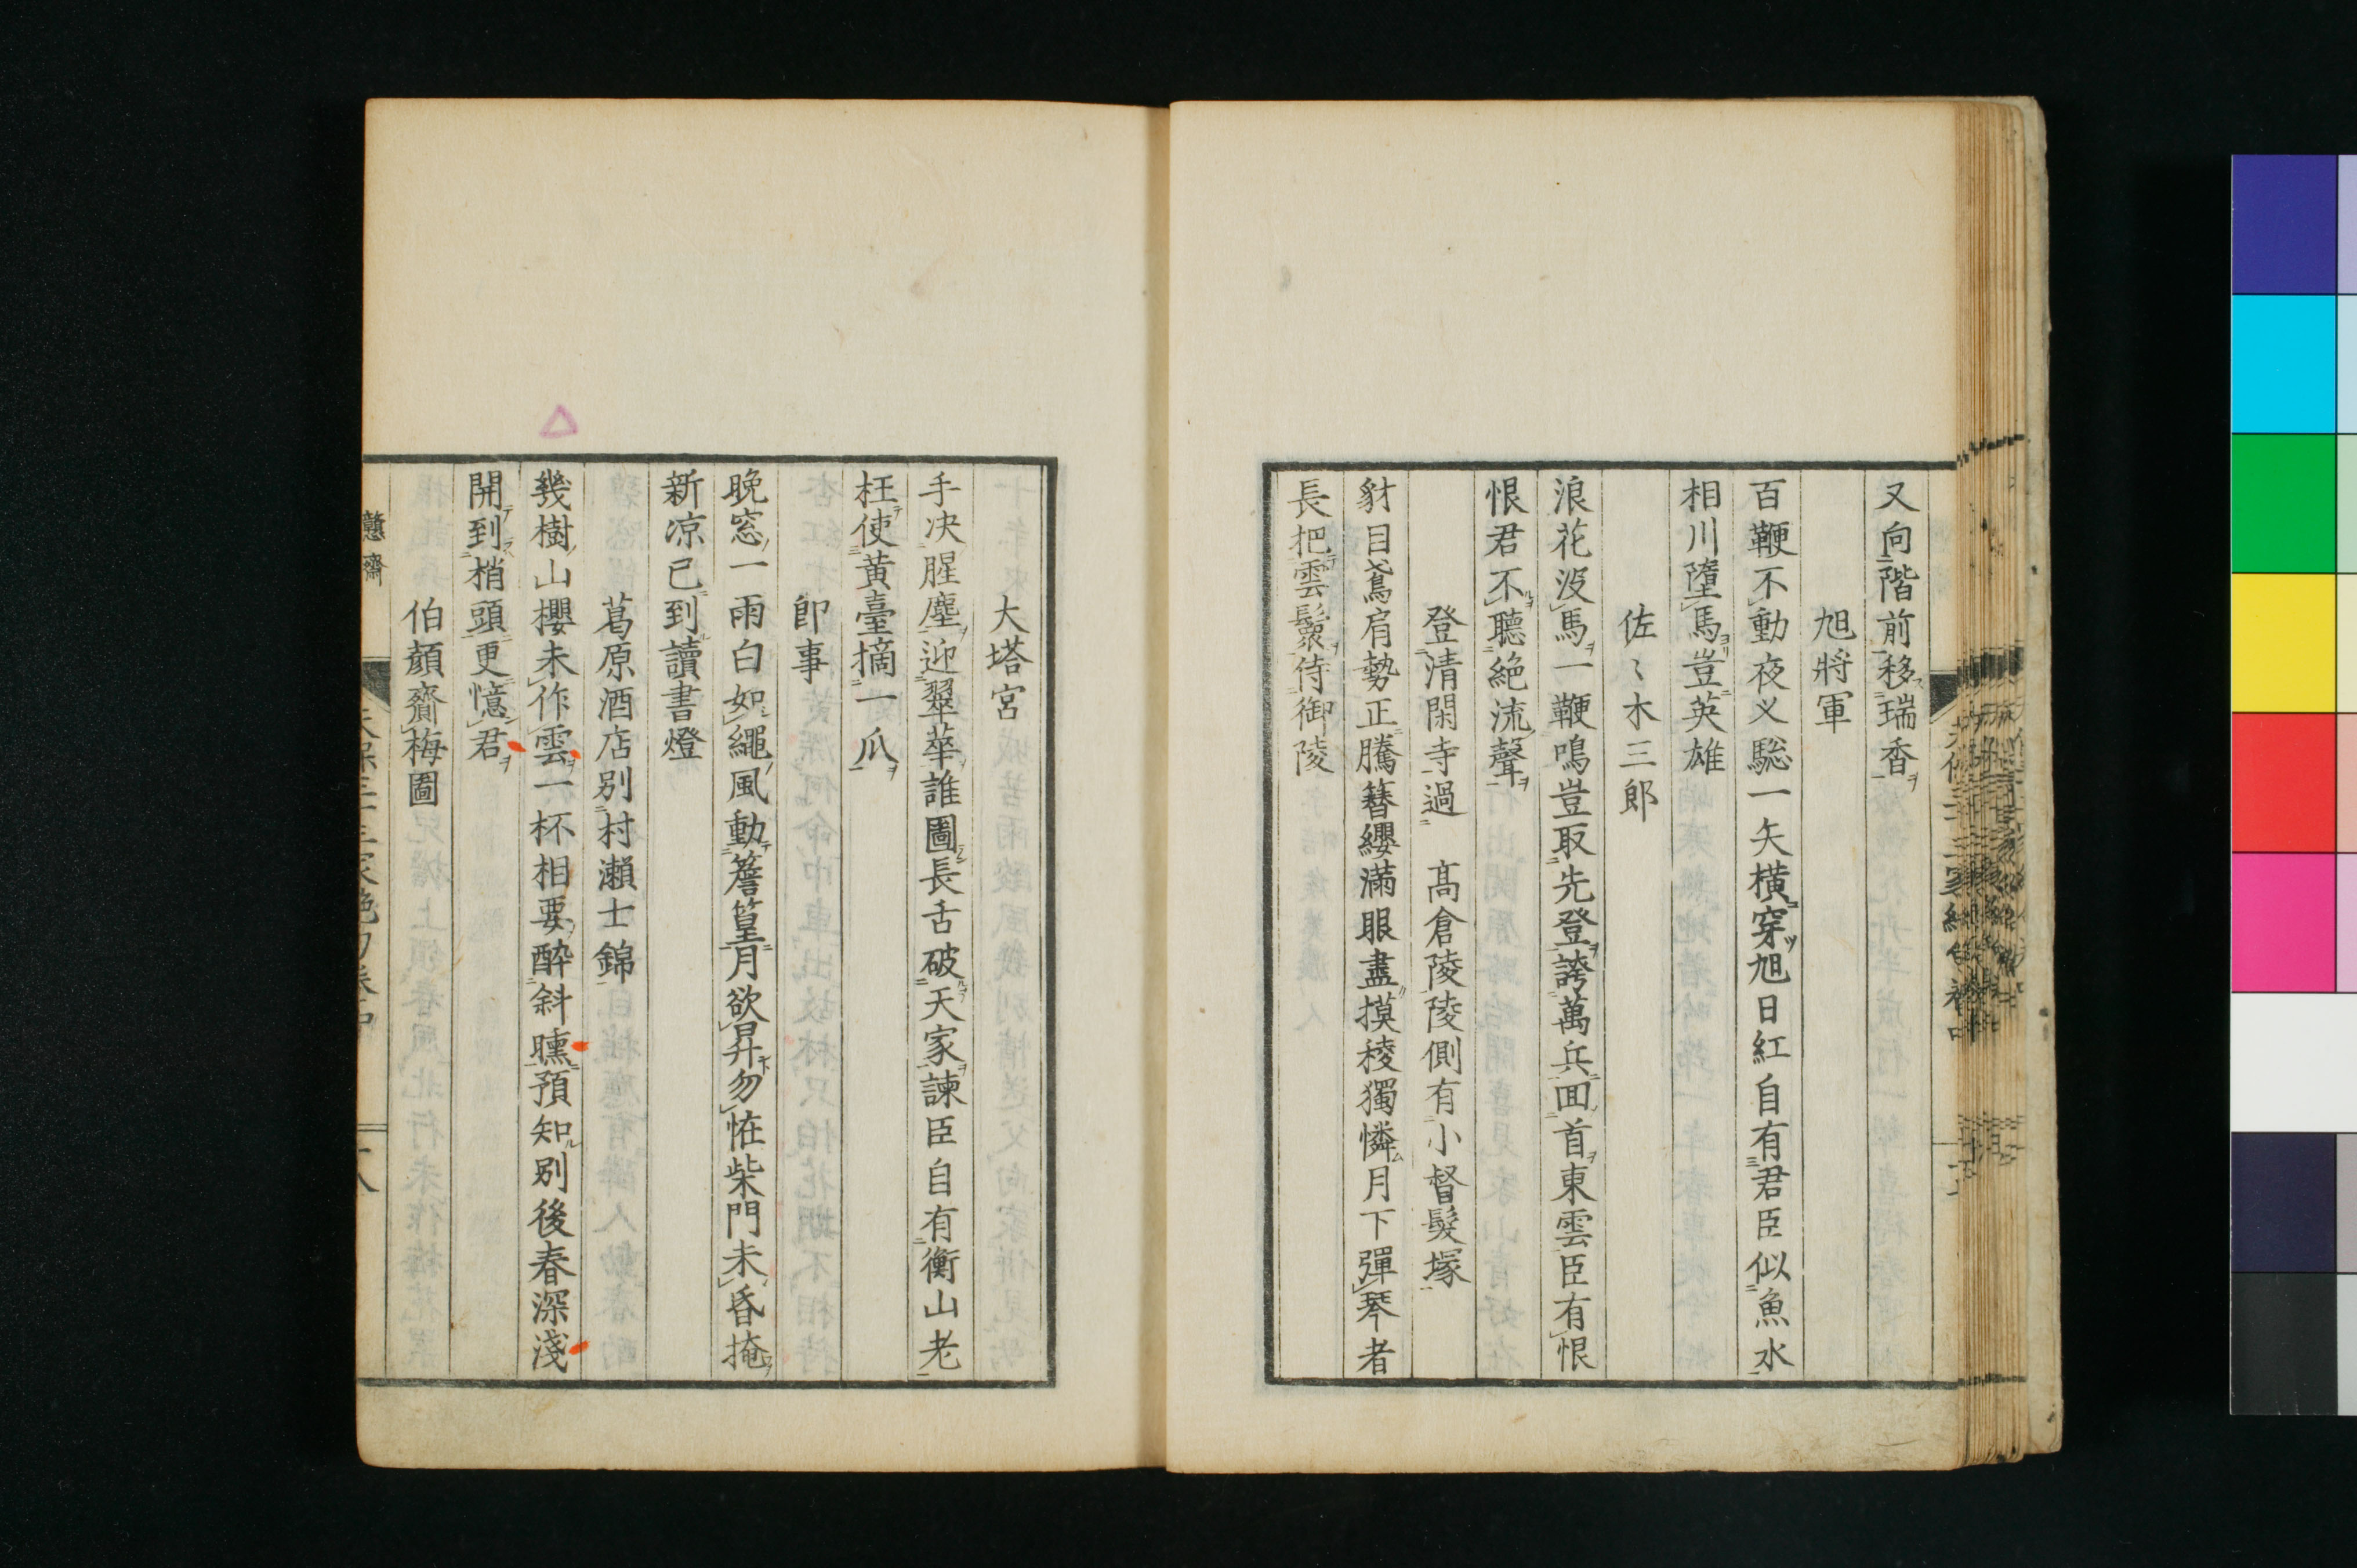 又向階前移瑞香
旭將軍
百鞭不動夜叉驄一矢橫穿旭日紅自有君臣似魚水
相川墮馬豈英雄
佐〻木三郎
浪花沒馬一鞭鳴豈取先登誇萬兵回首東雲臣有恨
恨君不聽絶流聲
登清閑寺過　高倉陵陵側有小督髮塚
豺目鳶肩勢正騰簪纓滿眼盡摸稜獨憐月下彈琴者
長把雲鬟侍御陵
大塔宮
手决腥塵迎翠華誰圖長舌破天家諫臣自有衡山老
枉使黃臺摘一瓜
卽事
晚窓一雨白如繩風動簷篁月欲昇勿恠柴門未昏掩
新凉已到讀書燈
葛原酒店別村瀨士錦
幾樹山櫻未作雲一杯相要醉斜曛預知別後春深淺
開到梢頭更憶君
伯顏齎梅圖